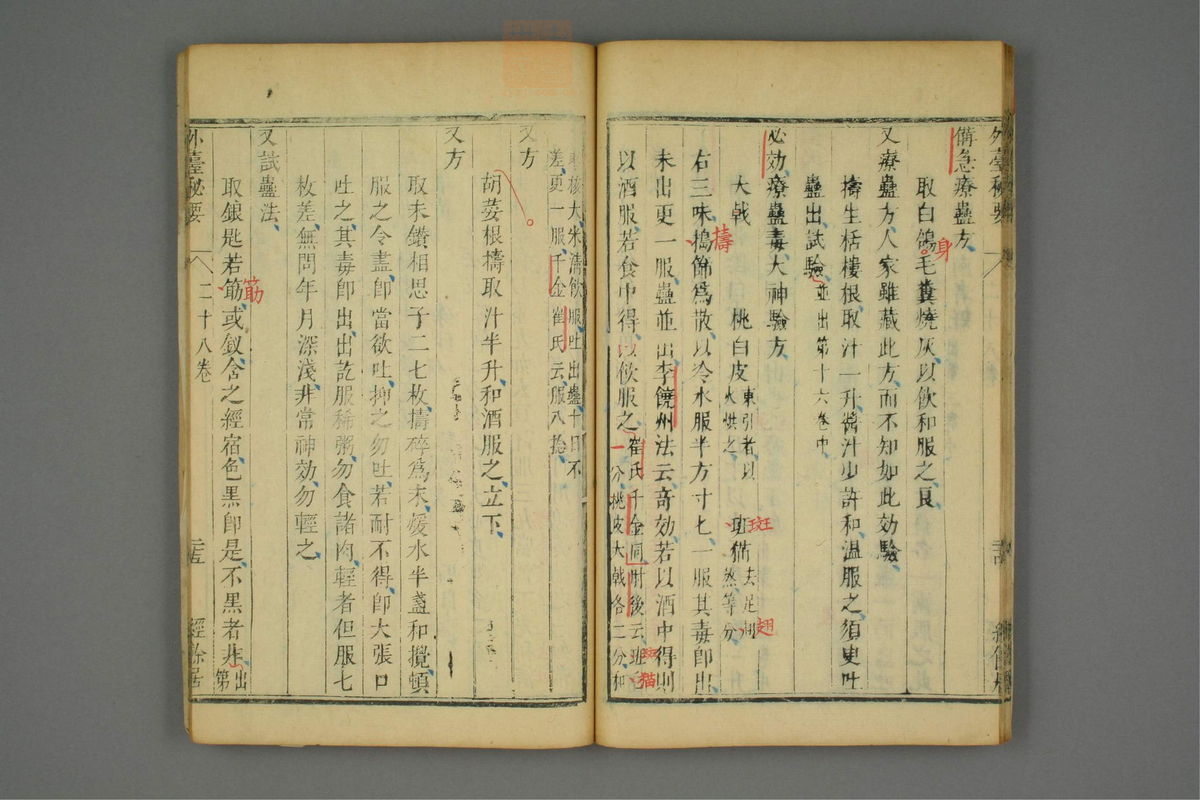 備急療蠱方
取白鴿毛糞燒灰以飲和服之良
身
又療蠱方人家雖藏此方而不知如此效驗
擣生栝樓根取汁一升醬汁少許和溫服之須臾吐
蠱出試驗並出第十六卷中
必効療蠱毒大神驗方
大戟 桃白皮東引者以火烘之 斑猫去足翅熬等分
斑
翅
右三味搗篩爲散以冷水服半方寸匕一服其毒卽出
擣
未出更一服蠱並出李饒州法云奇効若以酒中得則
以酒服若食中得以飲服之崔氏千金同肘後云班
一分桃皮大戟各二分和
斑猫
棗核大米清飲服吐出蠱十日不
差更一服千金崔氏云服八捻
又方
胡荽根擣取汁半升和酒服之立下
又方
取未鑽相思子二七枚擣碎爲末煖水半盞和攪頓
服之令盡卽當欲吐抑之勿吐若耐不得卽大張口
吐之其毒卽出出訖服稀粥勿食諸肉輕者但服七
枚差無問年月深淺非常神効勿輕之
又試蠱法
取銀匙若筯或釵含之經宿色黑卽是不黑者非出第
筋
外臺秘要
二十八卷
經餘居